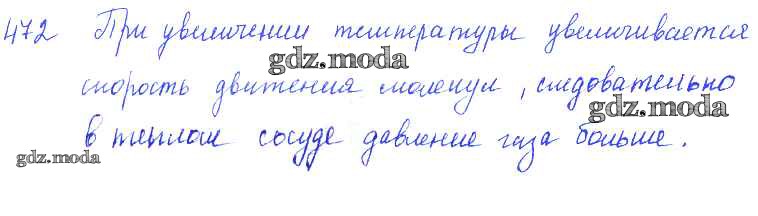 472 При увеличении температуры увеличивается
gdz.moda
скорость движения молекул, следовательно
gdz.moda
в теплом сосуде давление газа больше.
gdz.moda